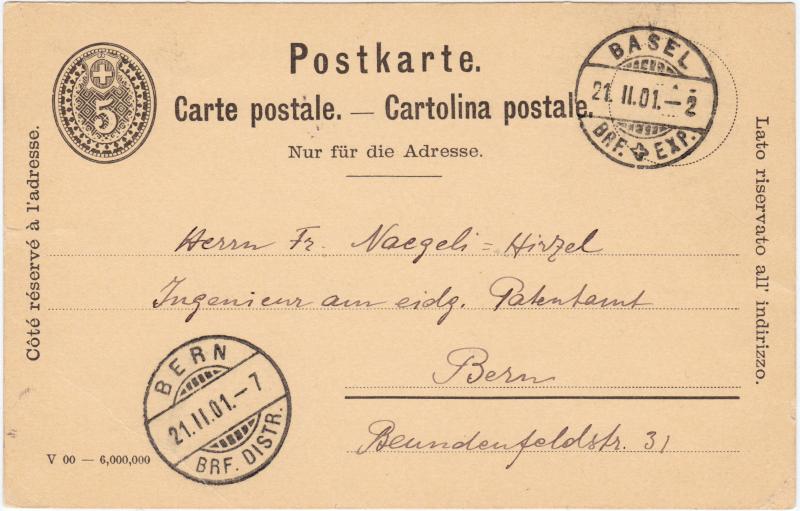 Postkarte.
Carte postale. — Cartolina postale.
Nur für die Adresse.
5
BASEL
21. II. 01. – 2
BRF. EXP.
Côté réservé à l'adresse.
Lato riservato all' indirizzo.
Herrn Fr. Naegeli=Hirzel
Ingenieur am eidg. Patentamt
Bern
Beundenfeldstr. 31
BERN
21. II. 01. – 7
BRF. DISTR.
V 00 — 6,000,000